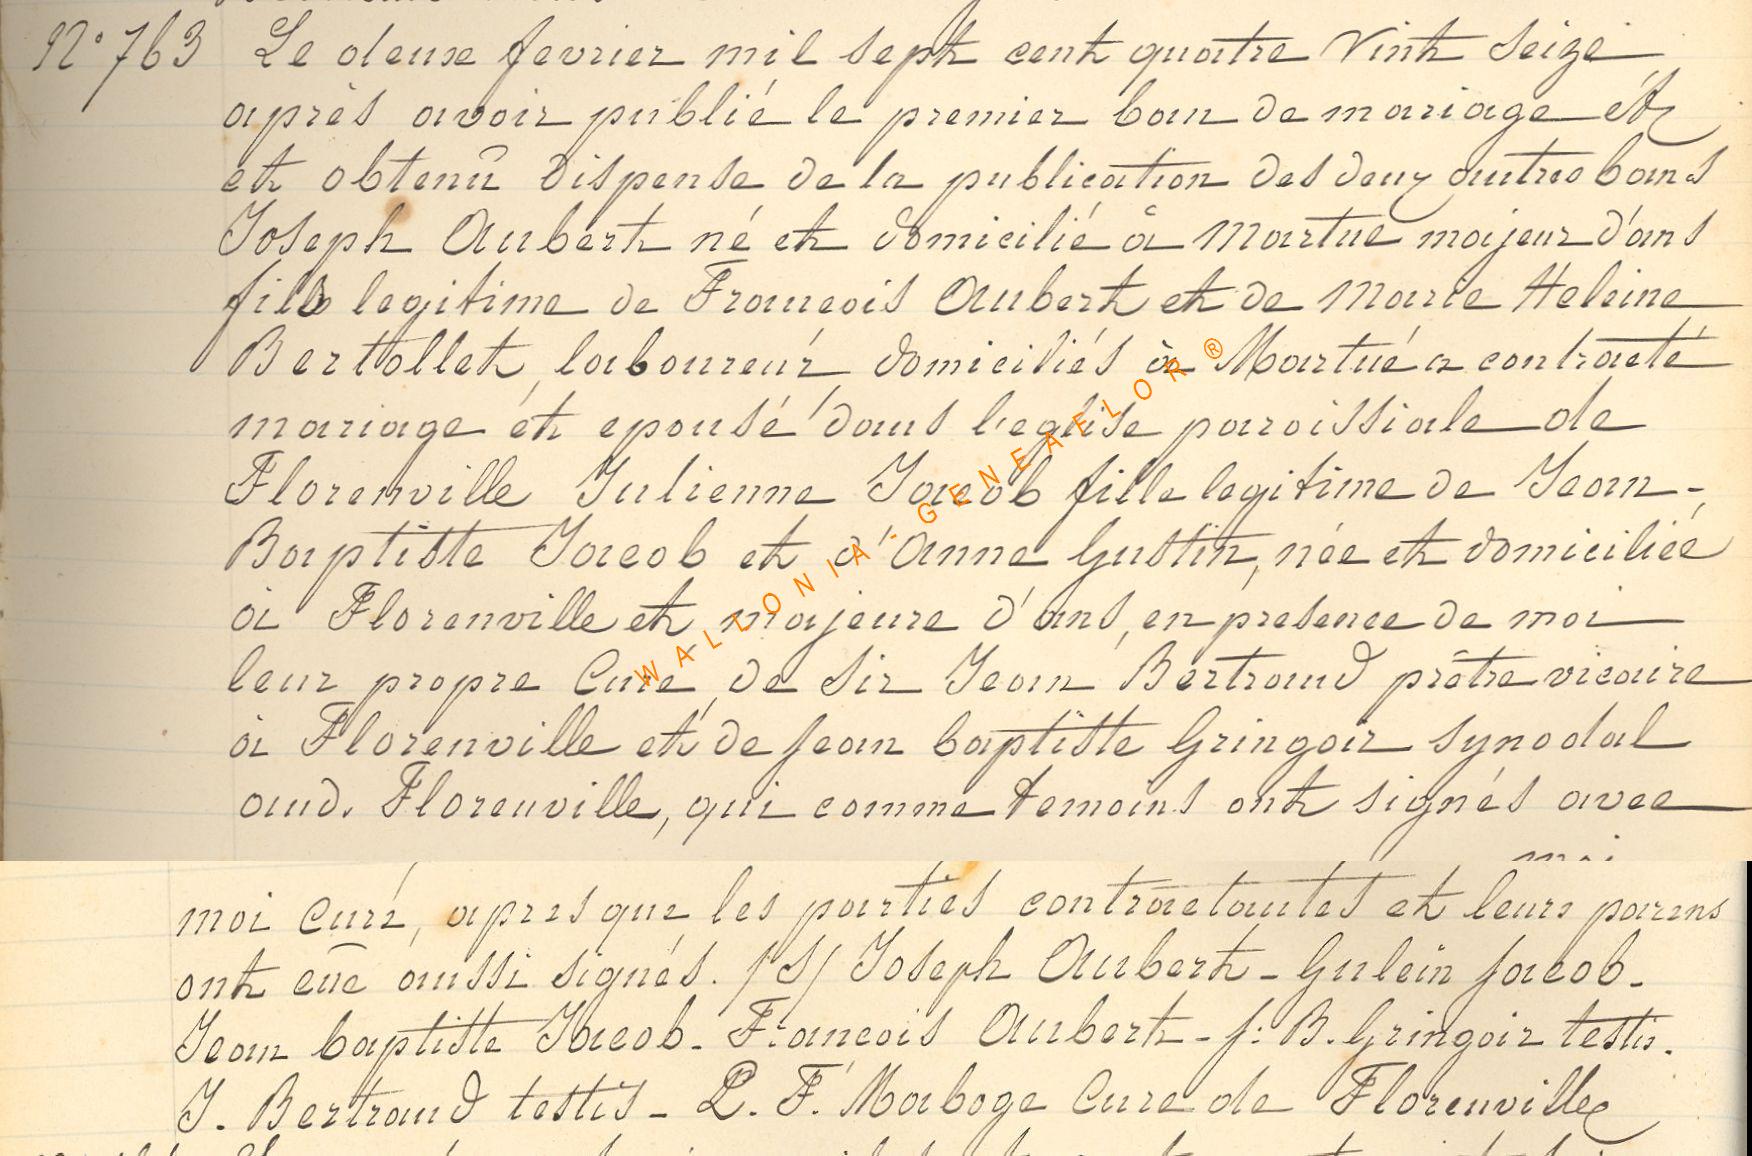 N° 763 Le deux fevrier mil sept cent quatre vint seize
après avoir publié le premier ban de mariage ét
et obtenû dispense de la publication des deux autres bans
Joseph Aubert né et domicilié à Martue majeur d'ans
fils legitime de Francois Aubert et de Marie Heleine
Bertollet, laboureur domiciliés à Martué a contracté
mariage ét epousé dans l'eglise paroissiale de
Florenville Julienne Jacob fille legitime de Jean-
Baptiste Jacob et d'Anne Gustin, née et domiciliée
à Florenville et majeure d'ans, en presence de moi
leur propre Curé, de Sir Jean Bertrand prêtre vicaire
à Florenville et de Jean baptiste Gringoir synodal
aud. Florenville, qui comme temoins ont signés avec
moi
moi Curé, apres que les parties contractantes et leurs parens
ont eue aussi signés. /S/ Joseph Aubert - Gulein Jacob.
Jean baptiste Jacob. Francois Aubert - J. B. Gringoir testis.
J. Bertrand testis - P. F. Maboge Cure de Florenville
WALLONIA - GENEAFLOR ®